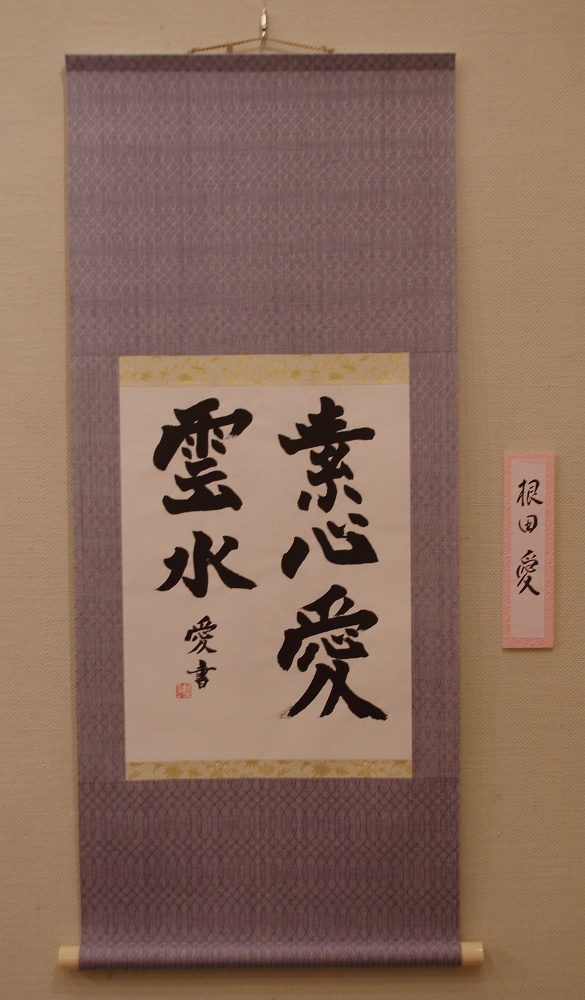 素心愛
雲水
愛書
根田 愛